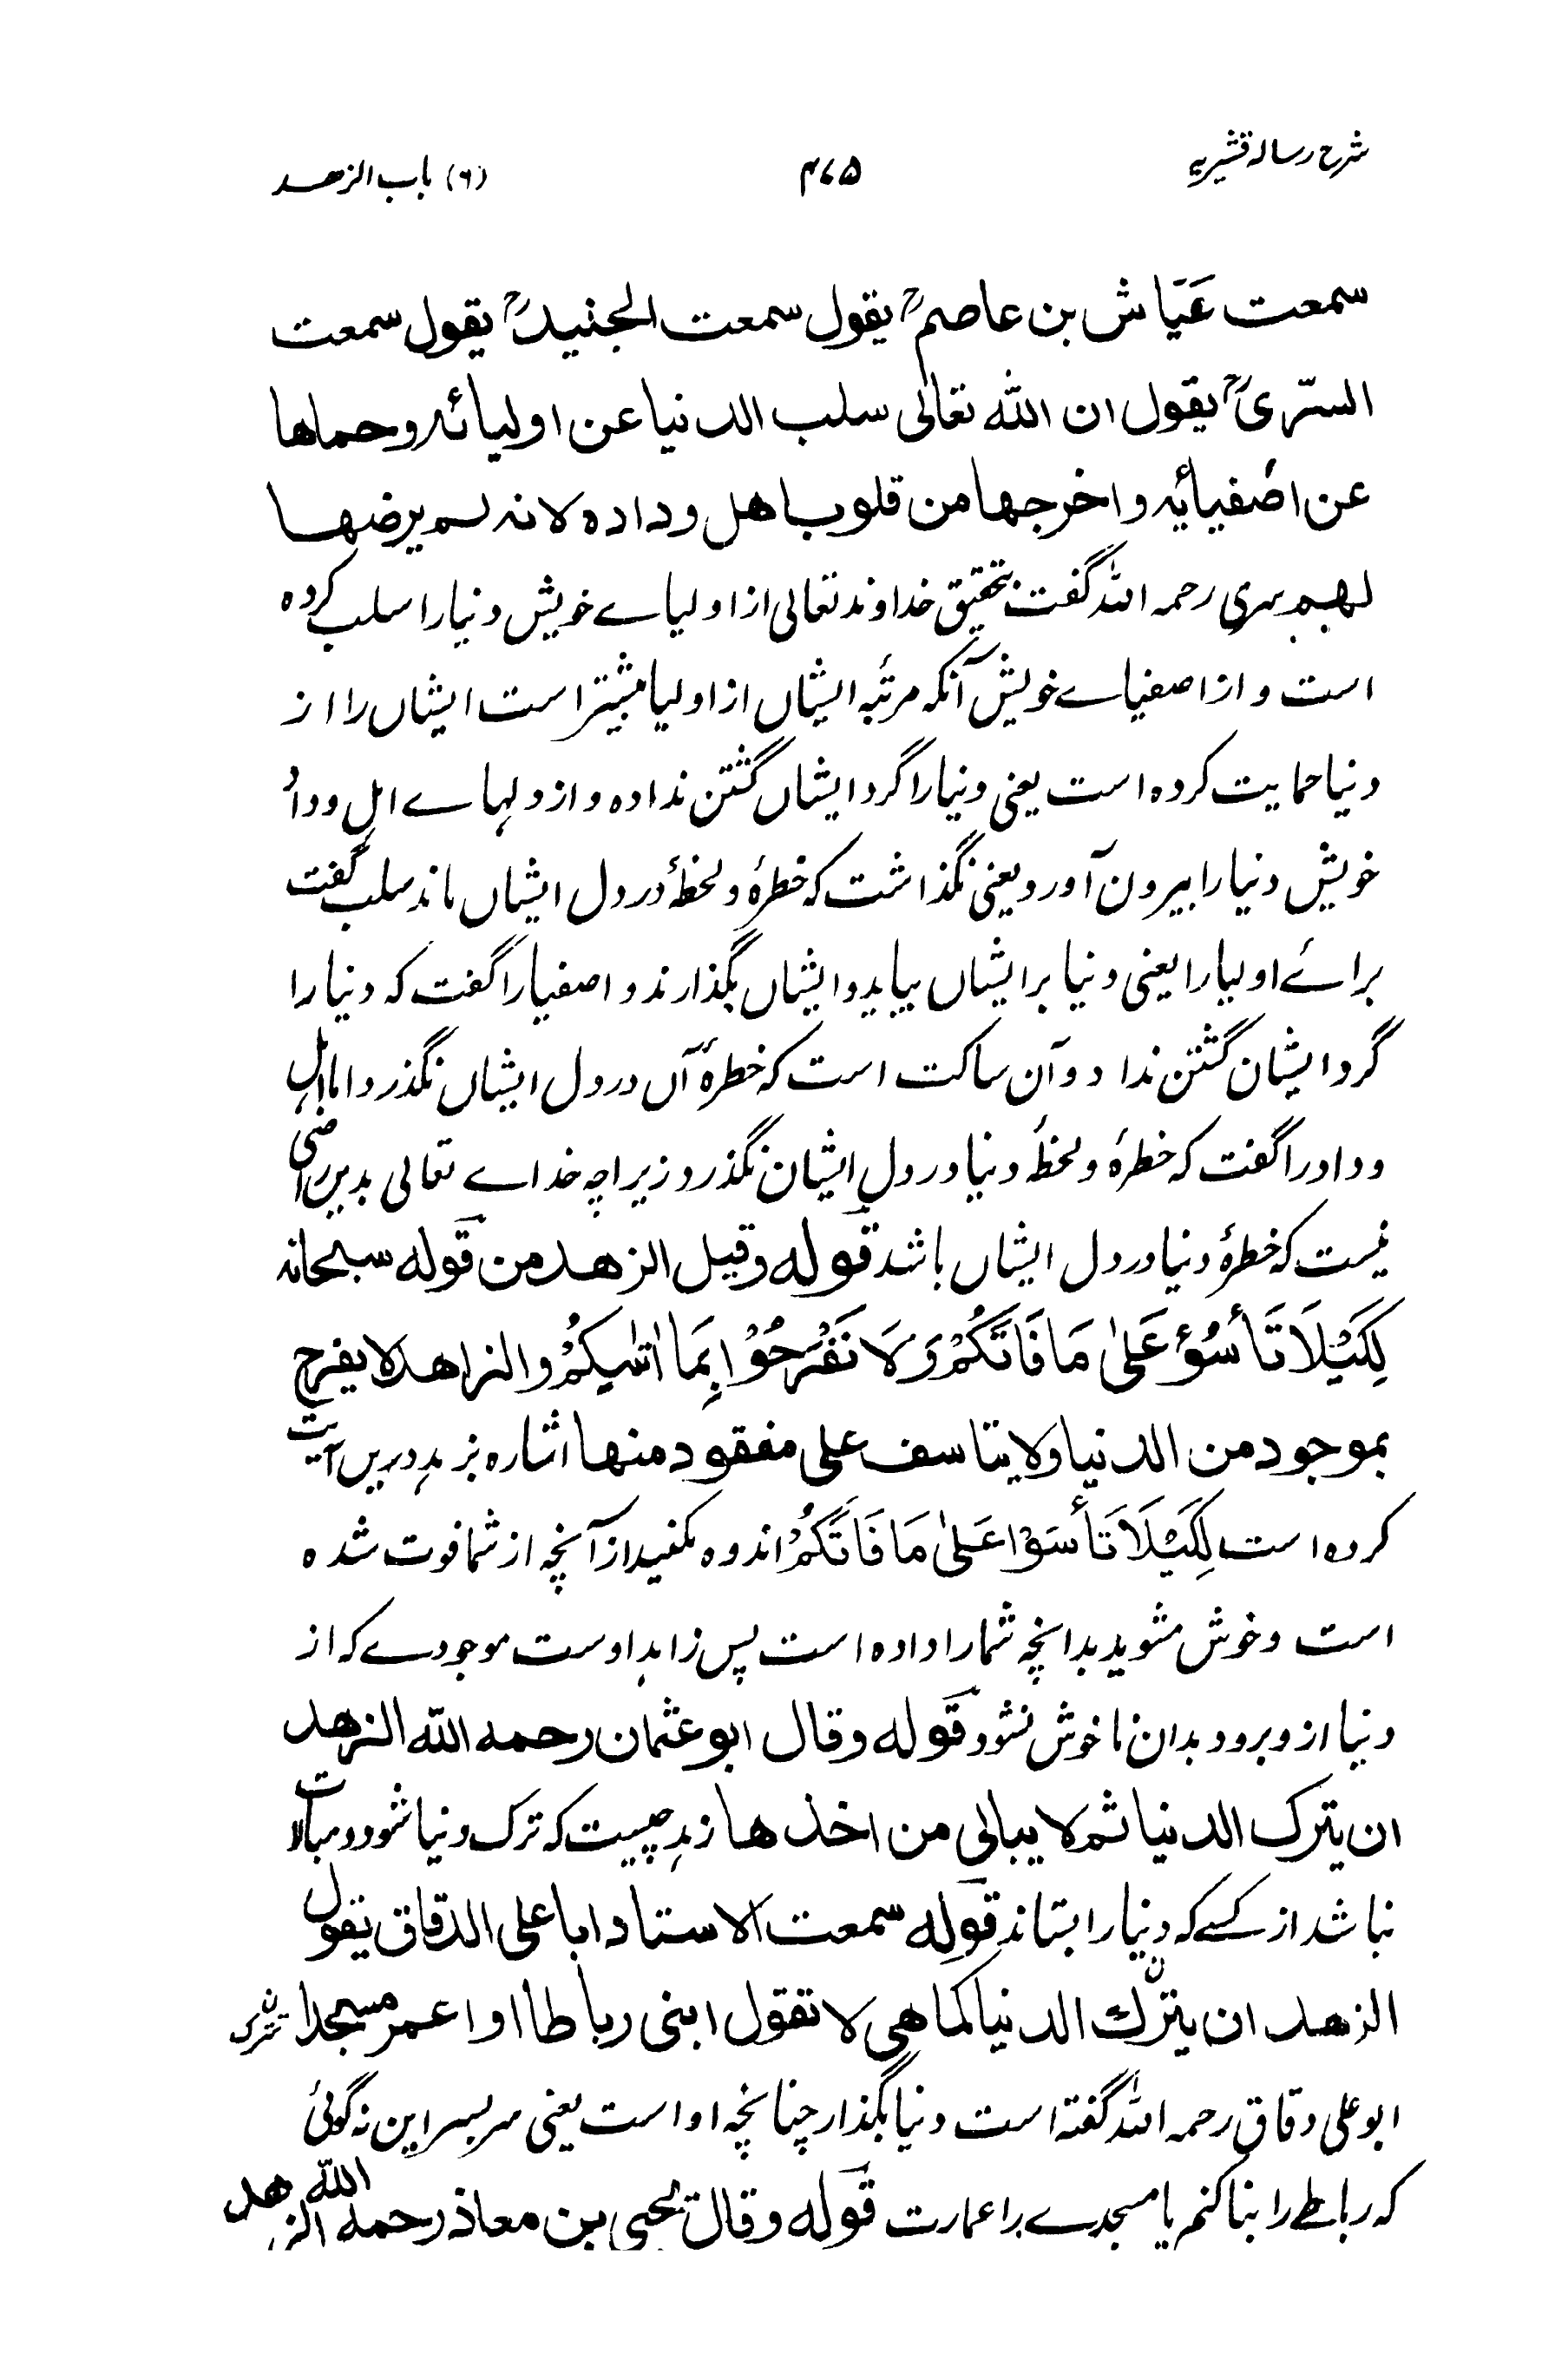 شرح رسالہ قشیریہ
۴۷۵
(۶) باب الزهد
سمعت عَیَّاش بن عاصمؒ یقول سمعت الجنیدؒ یقول سمعت
السّریؒ یقول ان اللّٰه تعالٰی سلب الدنیا عن اولیائه وحماها
عن اصفیائه واخرجها من قلوب اهل وداده لانه لم یرضها
لهم سری رحمہ اللہ گفت بتحقیق خداوند تعالی از اولیاے خویش دنیا را سلب کردہ
است و از اصفیاے خویش آنکہ مرتبۂ ایشاں از اولیا بیشتر است ایشاں را از
دنیا حمایت کردہ است یعنی دنیا را گرد ایشاں گشتن ندادہ و از دلہاے اہل وداد
خویش دنیا را بیرون آورد یعنی نگذاشت کہ خطرۂ و لحظۂ در دل ایشاں ماند سلب گفت
براے اولیا را یعنی دنیا بر ایشاں بیاید و ایشاں بگذارند و اصفیا را گفت کہ دنیا را
گرد ایشان گشتن نداد و آن ساکت است کہ خطرۂ آں در دل ایشاں نگذرد اما اہل
وداد را گفت کہ خطرۂ و لحظۂ دنیا در دل ایشان نگذرد زیراچہ خداے تعالی بدین راضی
نیست کہ خطرۂ دنیا در دل ایشاں باشد قوله وقیل الزهد من قوله سبحانه
لِكَیْلَا تَأسُوْ عَلٰی مَا فَاتَكُمْ وَلَا تَفْرَحُوْا بِمَا اٰتٰىكُمْ والزاهد لا یفرح
بموجود من الدنیا ولا یتاسف علی مفقود منها اشارہ بزہد دریں آیت
کردہ است لِكَیْلَا تَأسَوْا عَلٰی مَا فَاتَكُمْ اندوہ مکنید از آنچہ از شما فوت شدہ
است و خوش مشوید بدانچہ شما را دادہ است پس زاہد اوست موجودے کہ از
دنیا از و برود بدان ناخوش نشود قوله وقال ابو عثمان رحمه اللّٰه الزهد
ان یترك الدنیا ثم لا یبالی من اخذها زہد چیست کہ ترک دنیا شود و مبالات
نباشد از کسے کہ دنیا را بستاند قوله سمعت الاستاد ابا علی الدقاق یقول
الزهد ان یترك الدنیا کما هی لا تقول ابنی رباطا او اعمر مسجدا
ابو علی دقاق رحمہ اللہ گفتہ است دنیا بگذار چنانچہ او است یعنی سر بسر این نہ گوئی
کہ رباطے را بنا کنم یا مسجدے را عمارت قوله وقال یحیی بن معاذ رحمه اللّٰه الزهد